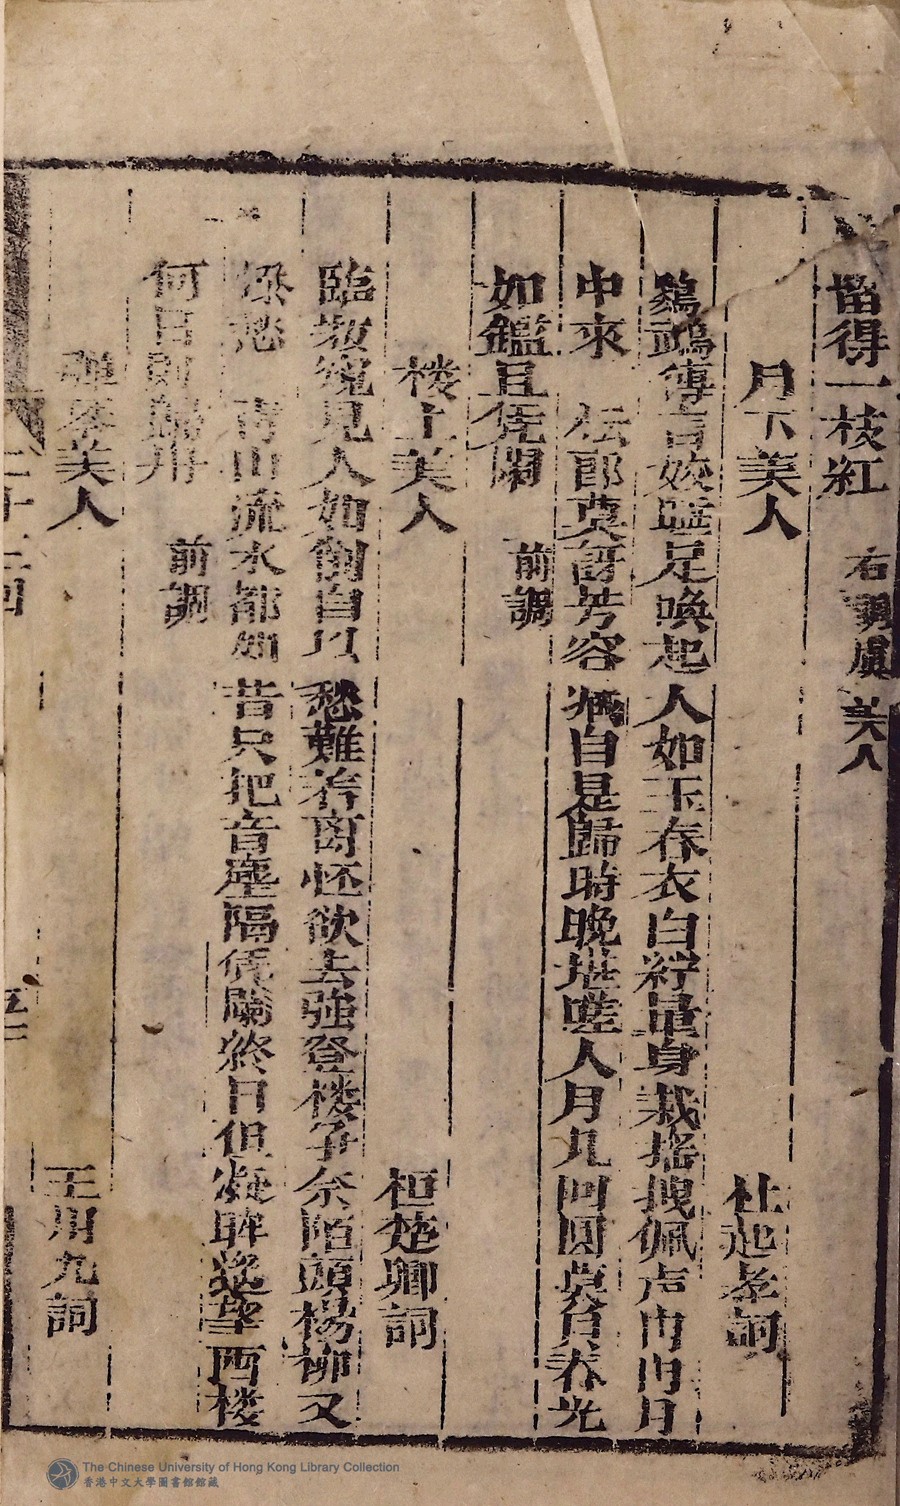 留得一枝紅 右調虞美人
月下美人 杜起孝詞
鸚鵡傳言姣䀹足喚起人如玉春衣白紵量身栽搖拽佩声冉冉月
中來 伝郎莫訝芳容 自是歸時晚堪嗟人月几回圓莫負春光
如鑑且凭闌 前調
楼上美人 桓楚卿詞
臨妝窺見人如削自以愁難着离怀欲去強登楼爭奈陌頭楊柳又
愁 青山流水都如昔只把音塵隔凭闌終日但凝眸 望西楼
何日 歸舟 前調
弹琴美人 王川九詞
二十三回
The Chinese University of Hong Kong Library Collection
香港中文大學圖書館館藏